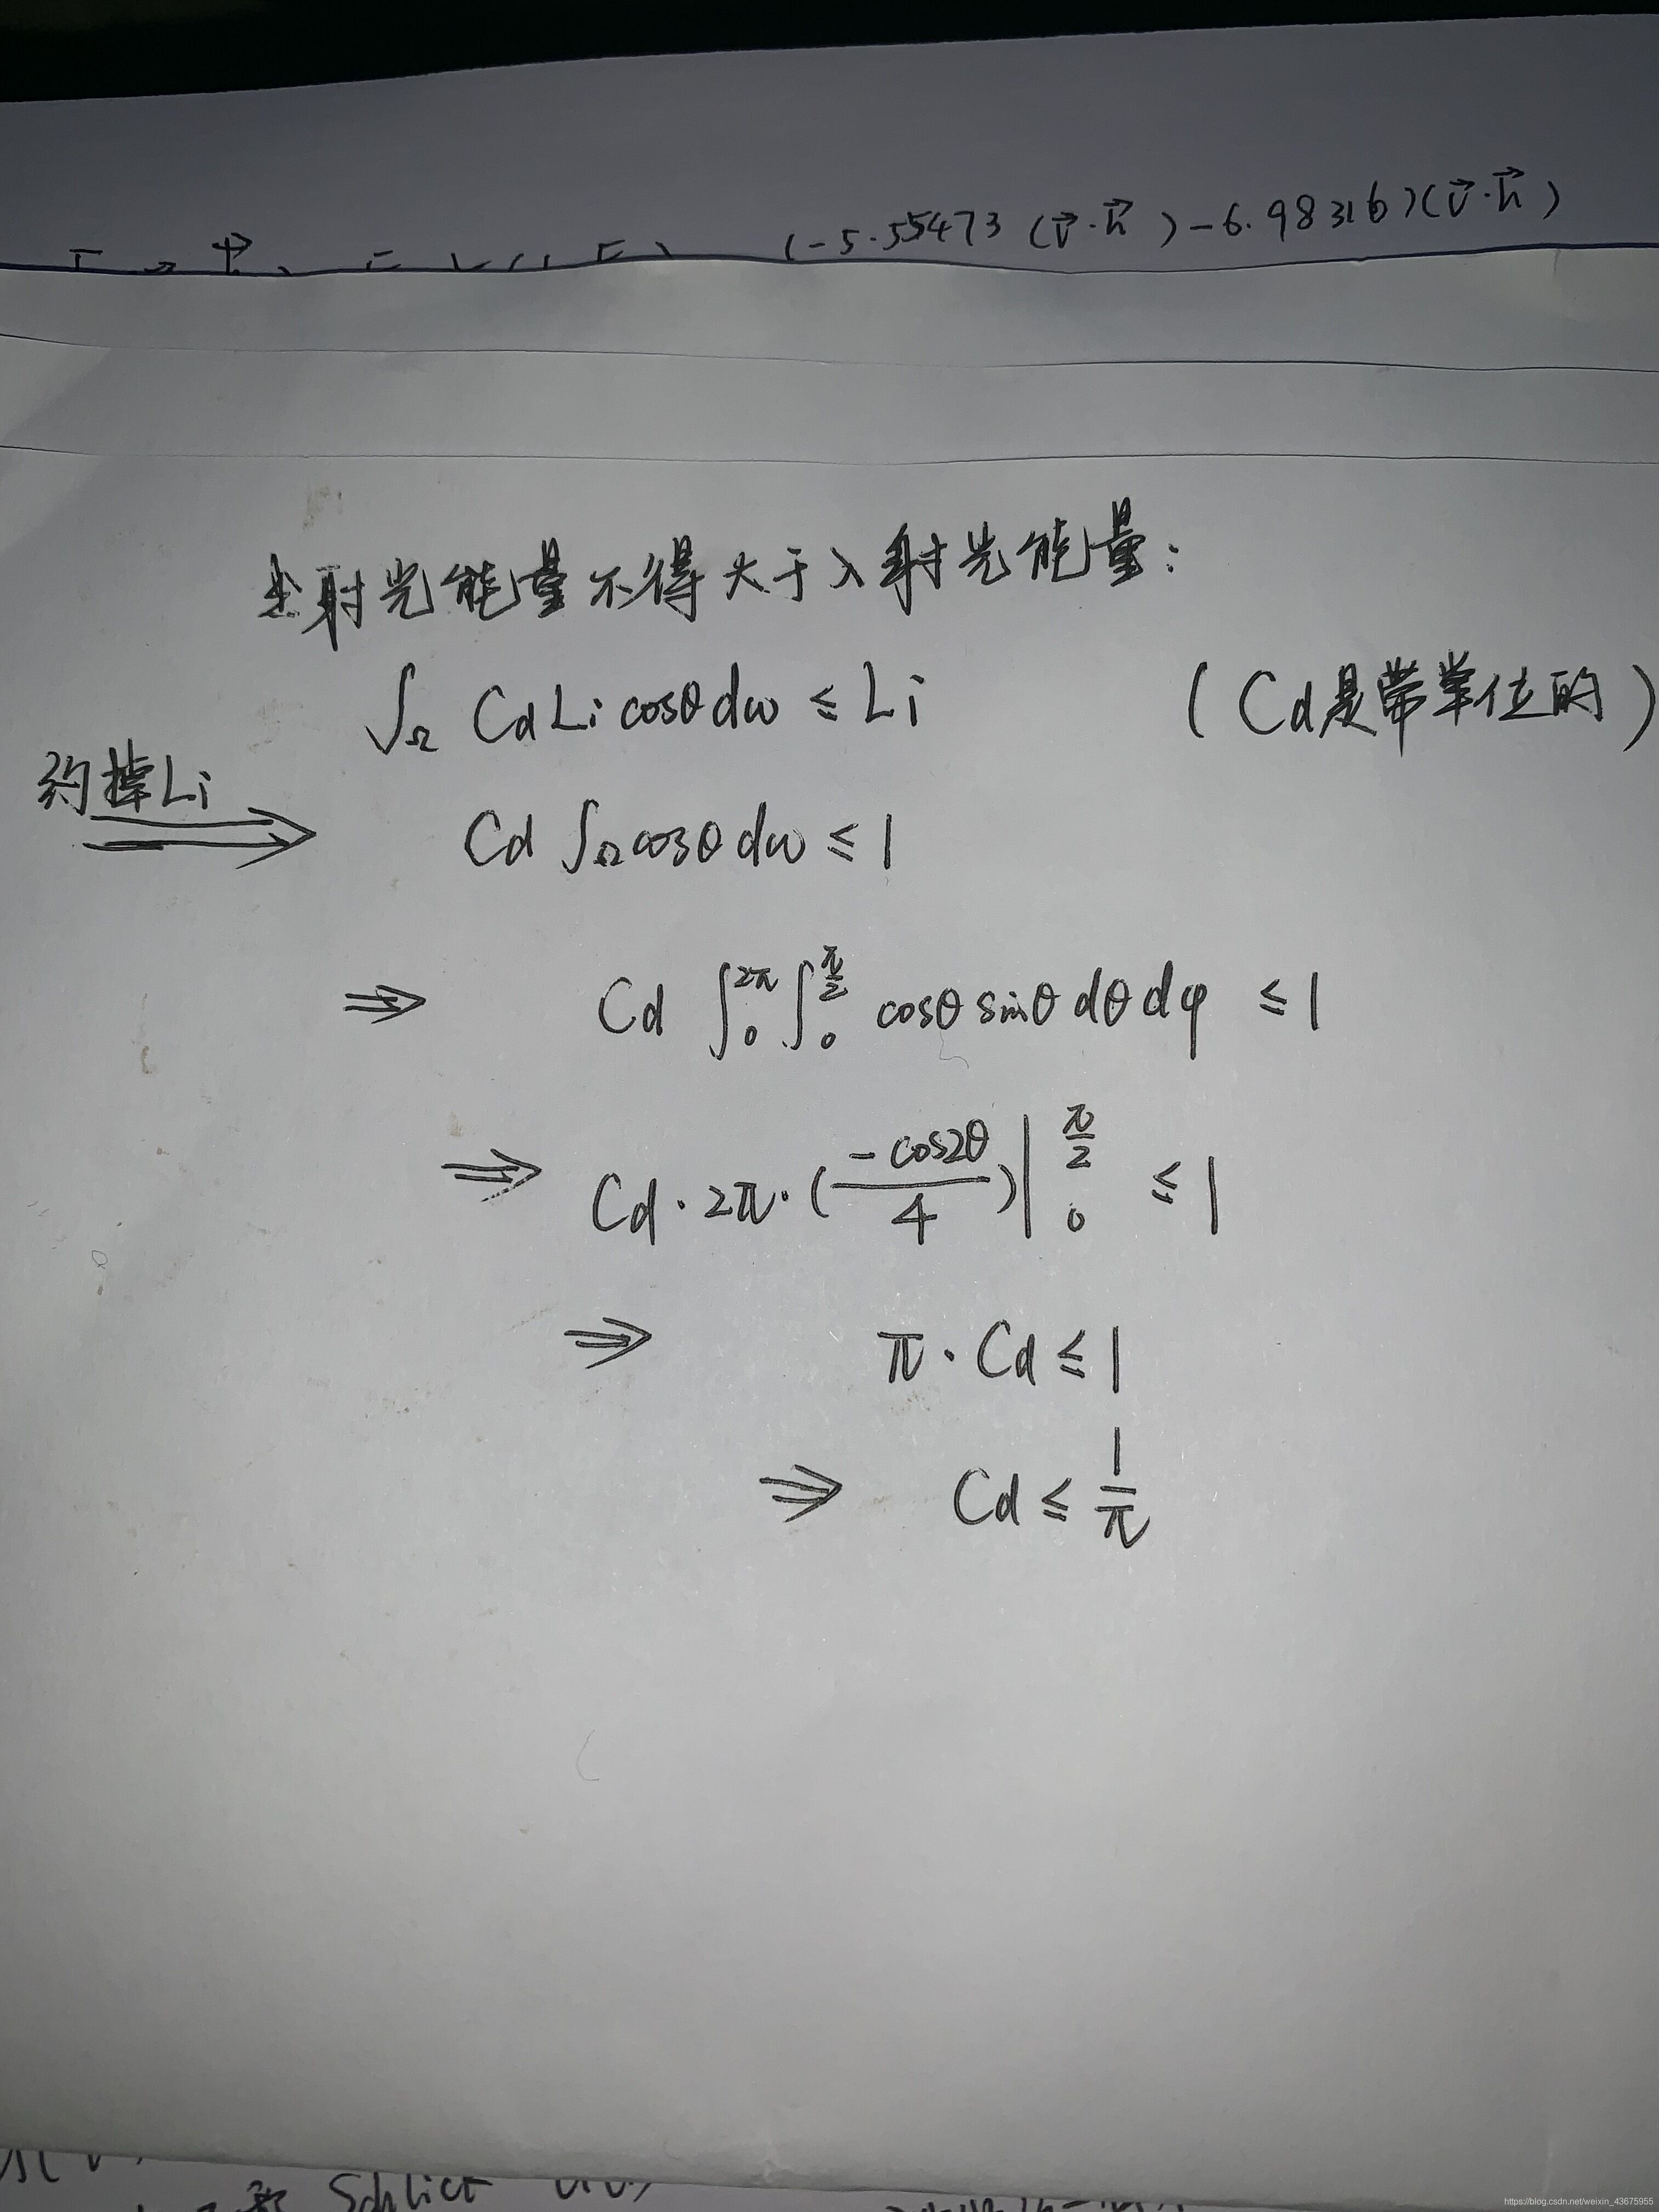 (-5.55473 (v⃗·h⃗) - 6.98316)(v⃗·h⃗)
出射光能量不得大于入射光能量:
∫Ω Cd Li cosθ dω ≤ Li (Cd是带单位的)
约掉Li
⇒ Cd ∫Ω cosθ dω ≤ 1
⇒ Cd ∫₀^2π ∫₀^π/2 cosθ sinθ dθ dφ ≤ 1
⇒ Cd · 2π · (-cos2θ / 4) | ₀^π/2 ≤ 1
⇒ π · Cd ≤ 1
⇒ Cd ≤ 1/π
Schlick
https://blog.csdn.net/weixin_43675955